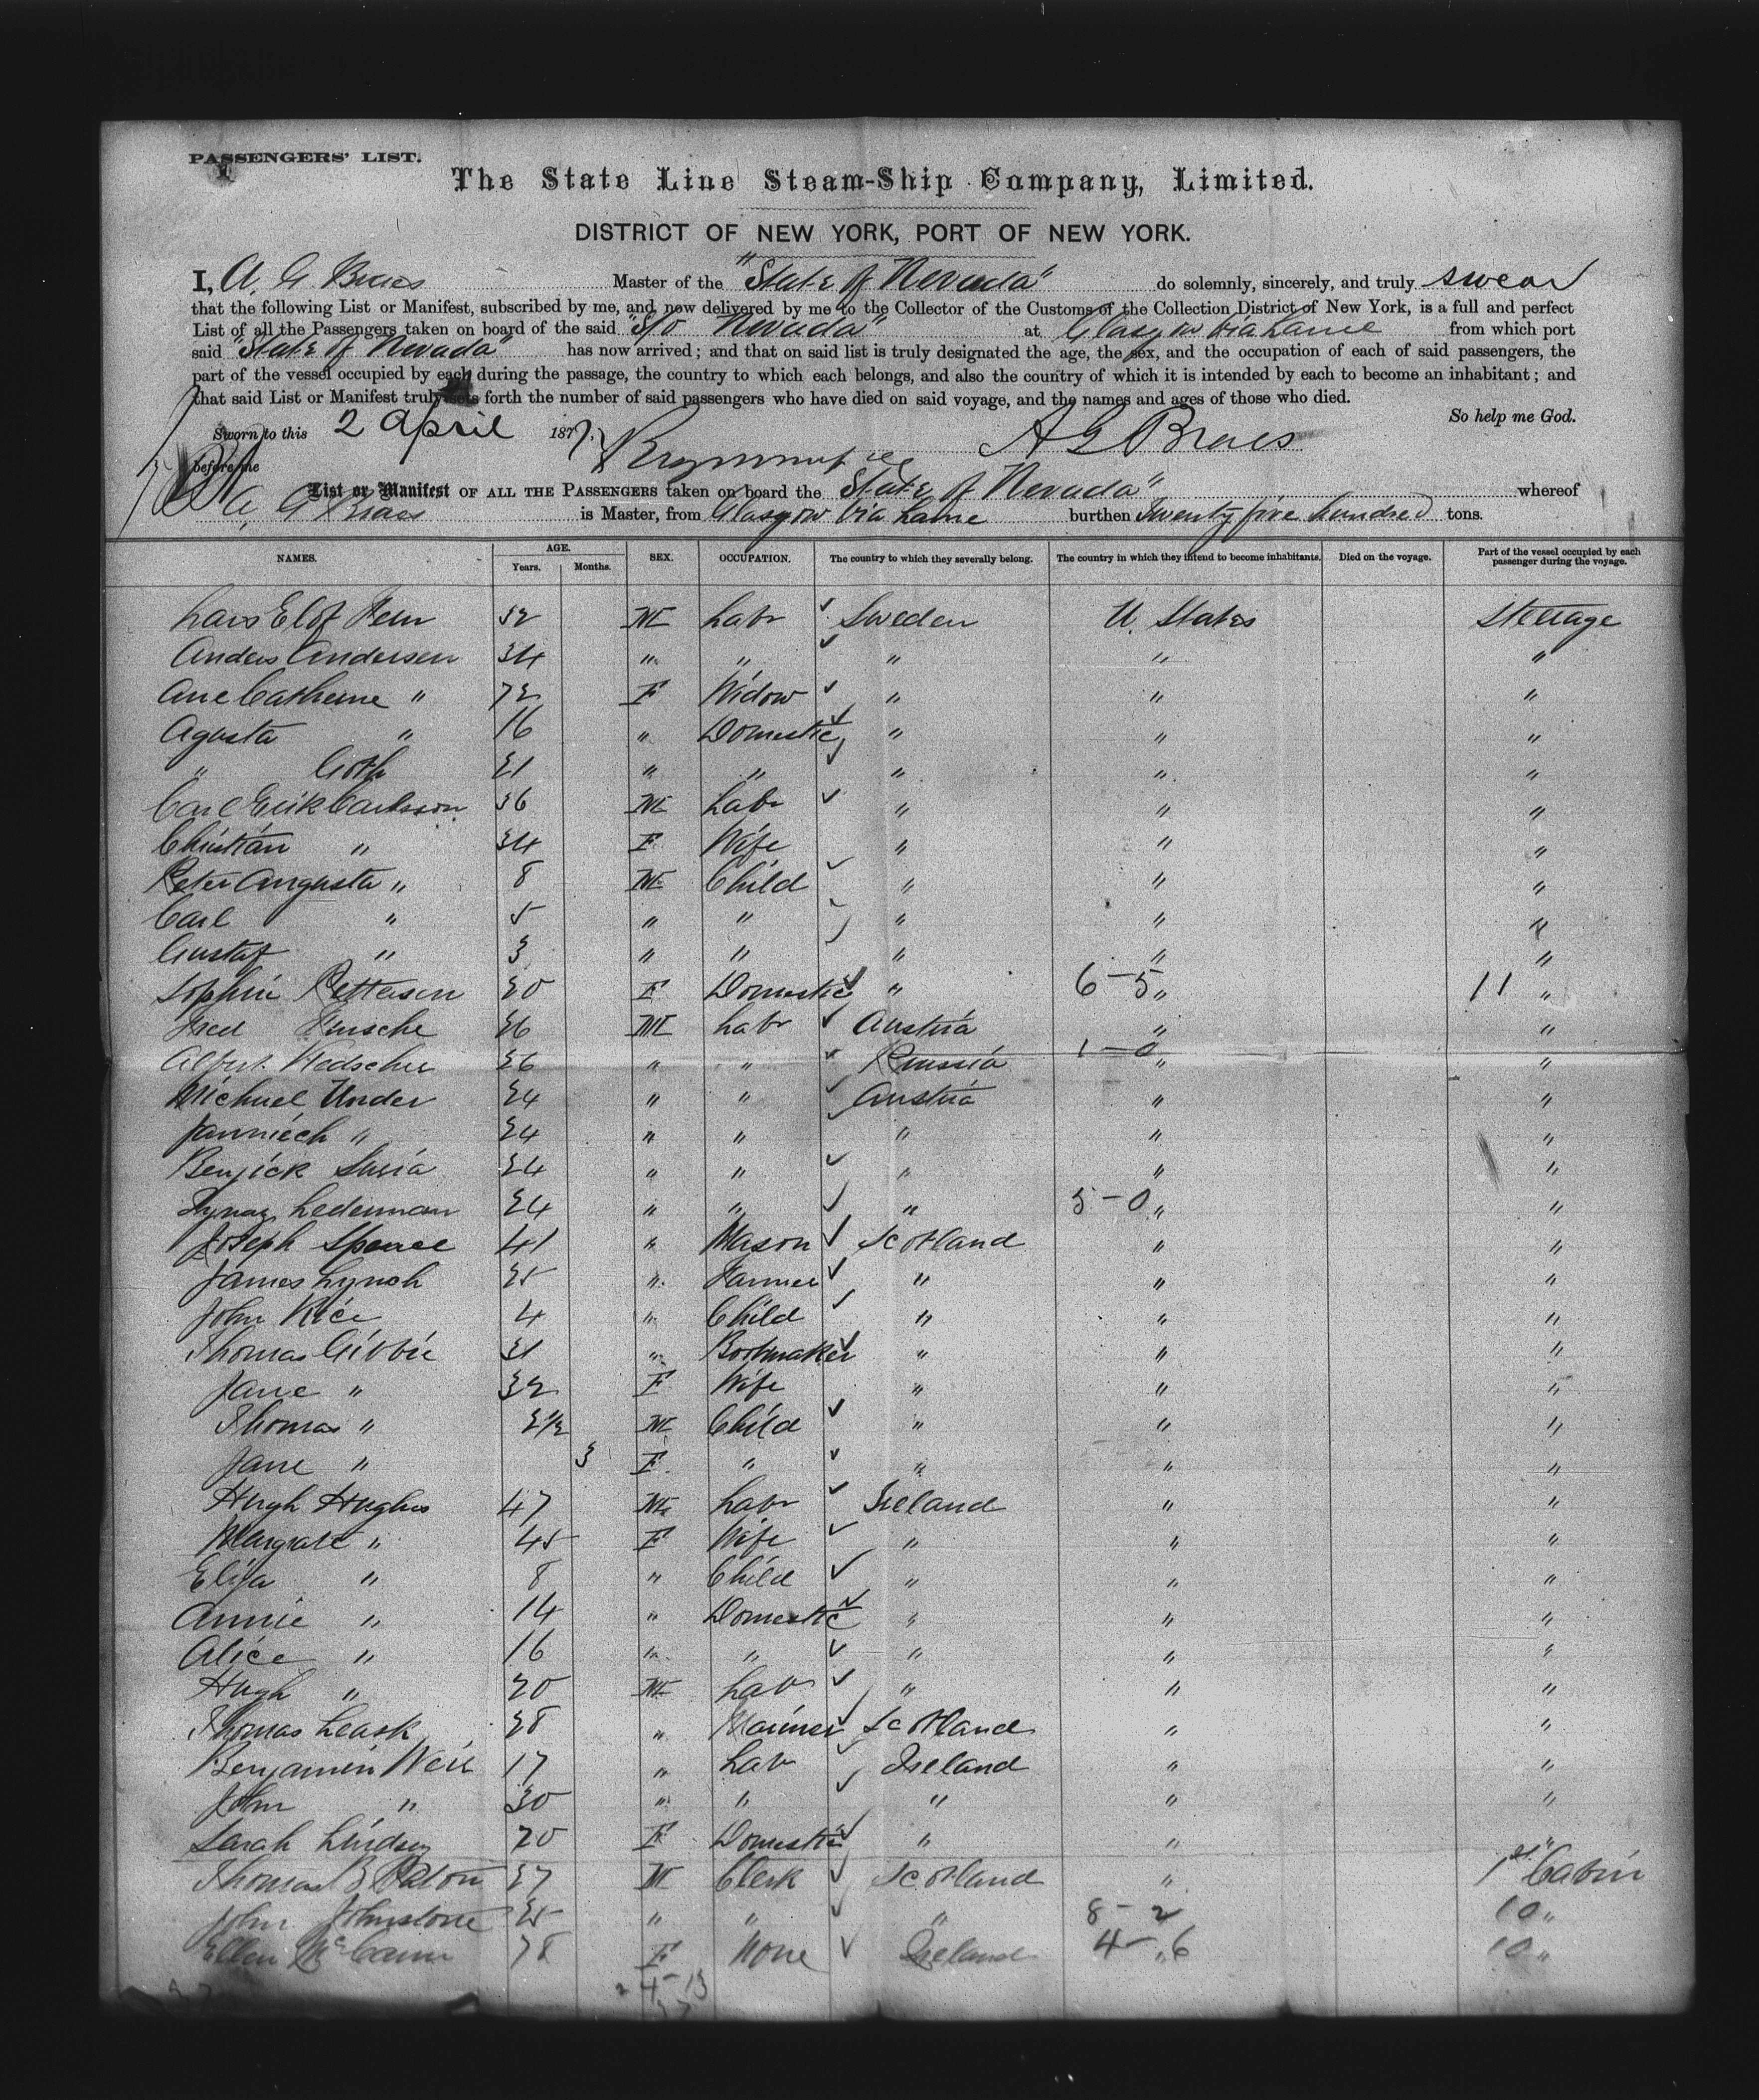 PASSENGERS' LIST.
The State Line Steam-Ship Company, Limited.
DISTRICT OF NEW YORK, PORT OF NEW YORK.
I, A. G. Braes Master of the "State of Nevada" do solemnly, sincerely, and truly swear
that the following List or Manifest, subscribed by me, and now delivered by me to the Collector of the Customs of the Collection District of New York, is a full and perfect
List of all the Passengers taken on board of the said "S/o Nevada" at Glasgow via Larne from which port
said "State of Nevada" has now arrived; and that on said list is truly designated the age, the sex, and the occupation of each of said passengers, the
part of the vessel occupied by each during the passage, the country to which each belongs, and also the country of which it is intended by each to become an inhabitant; and
that said List or Manifest truly sets forth the number of said passengers who have died on said voyage, and the names and ages of those who died.
So help me God.
Sworn to this 2 April 1877. A G Braes
before me
List or Manifest OF ALL THE PASSENGERS taken on board the State of Nevada" whereof
A G Braes is Master, from Glasgow Via Larne burthen Twenty five hundred tons.
NAMES. AGE. Years. Months. SEX. OCCUPATION. The country to which they severally belong. The country in which they intend to become inhabitants. Died on the voyage. Part of the vessel occupied by each passenger during the voyage.
Lars Elof 32 M Labr Sweden U. States Steerage
Anders Andersen 34 " " " " "
Ane Catherine " 72 F Widow " " "
Agusta " 16 " Domestic " " "
" Goth 21 " " " " "
Carl Erik Carlsson 36 M Labr " " "
Christian " 34 F Wife " " "
Peter Augusta " 8 M Child " " "
Carl " 5 " " " " "
Gustaf " 3 " " " " "
Sophie Petterson 20 F Domestic " 6-5 " 11 "
Fred 26 M Labr Austria " "
26 " " 1-0 " "
Michael Under 24 " " Austria " "
Janniech " 24 " " " " "
Benjick 24 " " " " "
Lederman 24 " " " 5-0 " "
Joseph Spence 41 " Mason Scotland " "
James Lynch 25 " Farmer " " "
John Rice 4 " Child " " "
Thomas Gibbie 31 " Bootmaker " " "
Jane " 32 F Wife " " "
Thomas " 2 1/2 M Child " " "
Jane " 3 F " " " "
Hugh Hughes 47 M Labr Ireland " "
Margrate " 45 F Wife " " "
Eliza " 8 " Child " " "
Annie " 14 " Domestic " " "
Alice " 16 " " " " "
Hugh " 20 M Labr " " "
Thomas Leask 28 " Mariner Scotland " "
Benjamin Weir 17 " Labr Ireland " "
John " 30 " " " " "
Sarah Lindsey 20 F Domestic " " "
Thomas B Paton 27 M Clerk Scotland " 1st Cabin
John Johnstone 25 " " " 8-2 10 "
Ellen McCann 78 F None Ireland 4-6 " 10 "
24-13
37